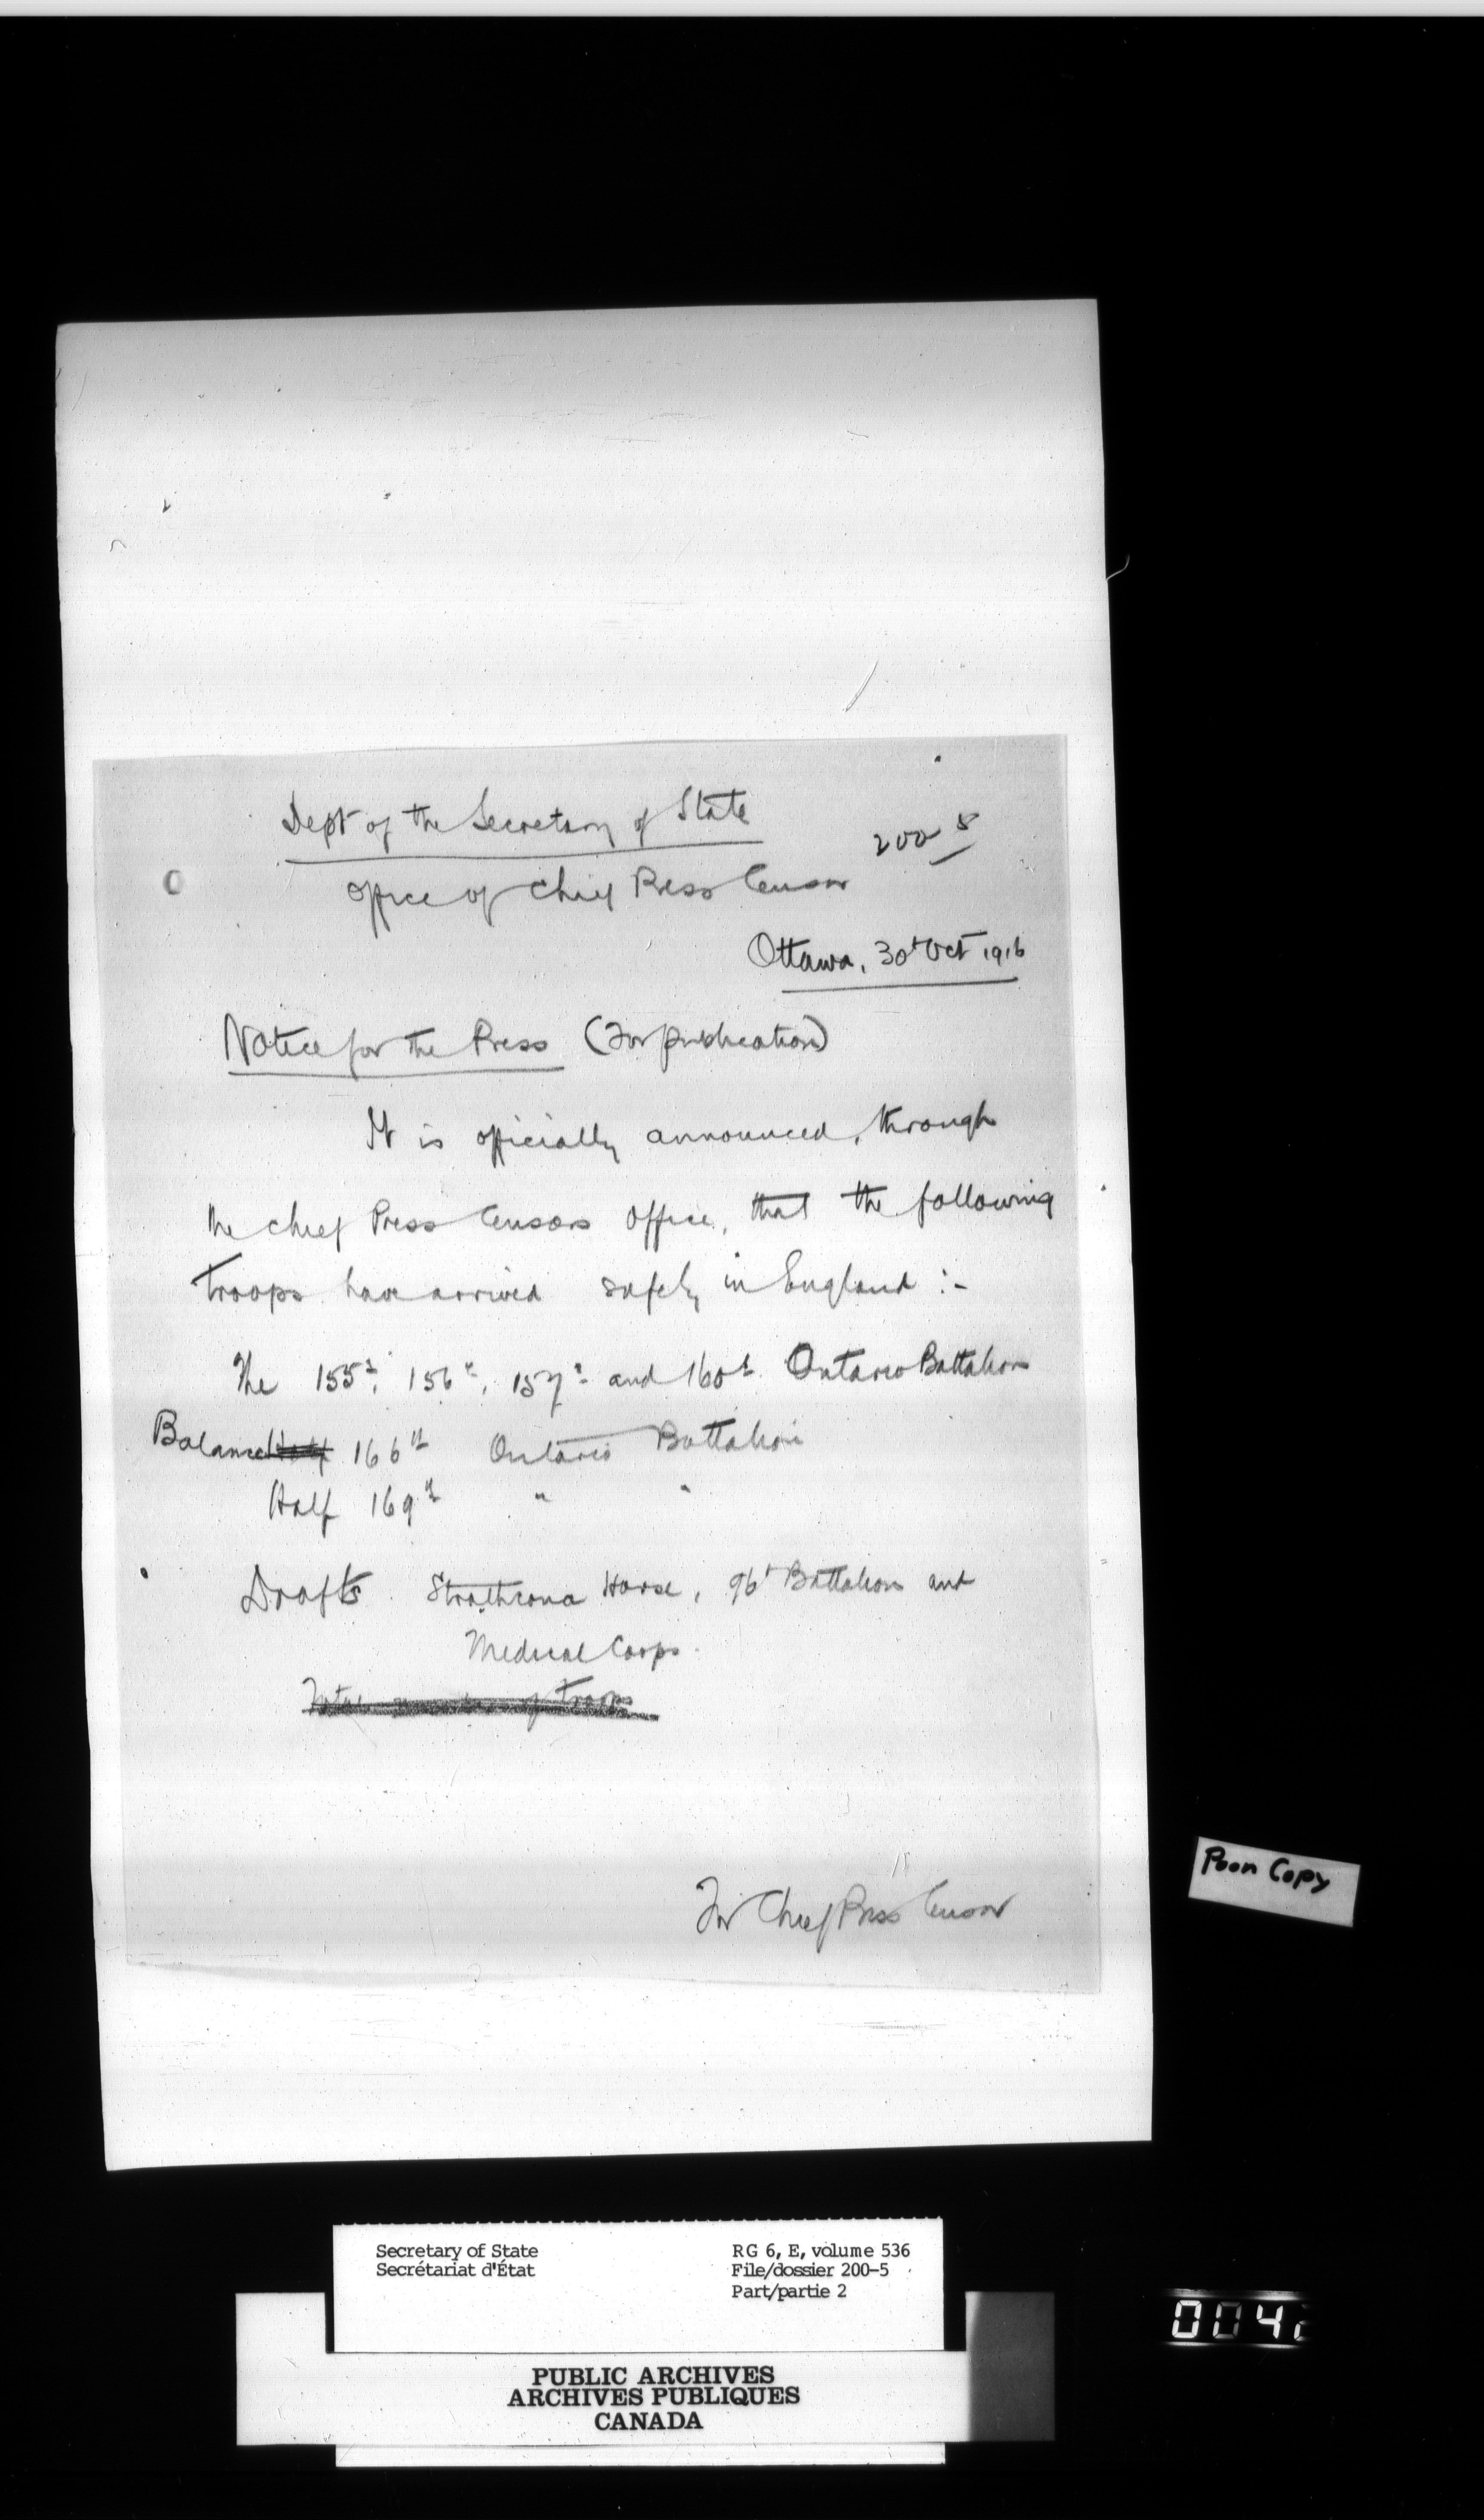 Dept of the Secretary of State
200-5
Office of Chief Press Censor
Ottawa, 30t Oct 1916
Notice for the Press (For publication)
It is officially announced, through
the Chief Press Censors Office, that the following
troops have arrived safely in England :-
The 155th, 156th, 157th and 160th Ontario Battalion
Balance Half 166th Ontario Battalion
Half 169th " "
Drafts Strathcona Horse, 96t Battalion and
Medical Corps.
Total number of troops
For Chief Press Censor
Poor Copy
Secretary of State
Secrétariat d'État
RG 6, E, volume 536
File/dossier 200-5
Part/partie 2
PUBLIC ARCHIVES
ARCHIVES PUBLIQUES
CANADA